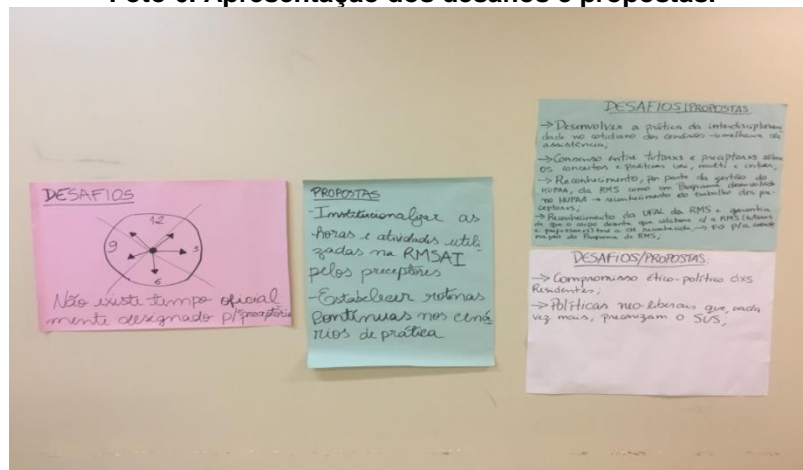 Foto 6: Apresentação dos desafios e propostas.
DESAFIOS
12
9
3
6
Não existe tempo oficial
mente designado p/ preceptoria
PROPOSTAS
- Institucionalizar as
horas e atividades utili
zadas na RMSAI
pelos preceptores
- Estabelecer rotinas
contínuas nos cená
rios de prática
DESAFIOS/PROPOSTAS
→ Desenvolver a prática da interdisciplinari
dade no cotidiano dos cenários → melhoria da
assistência;
→ Consenso entre tutorxs e preceptorxs sobre
os conceitos e práticas uni, multi e inter;
→ Reconhecimento, por parte da gestão do
HUPAA, da RMS como um Programa desenvolvido
no HUPAA → reconhecimento do trabalho dxs pre-
ceptorxs;
→ Reconhecimento da UFAL da RMS e garantia
de que o corpo docente que colabora c/ a RMS (tutores
e professores) tenha CH reconhecida
DESAFIOS/PROPOSTAS
→ Compromisso ético-político dxs
Residentes;
→ Políticas neo-liberais que, cada
vez mais, precarizam o SUS;